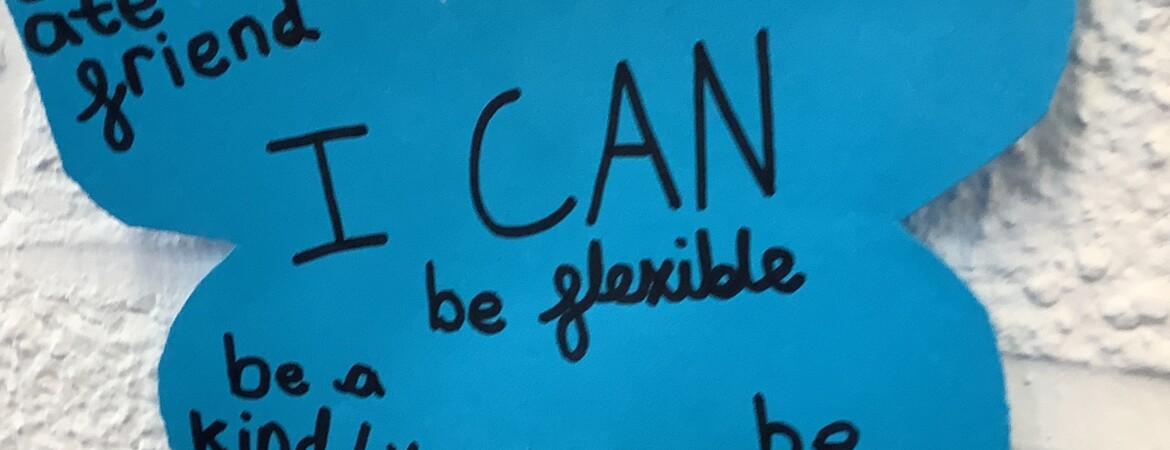 ate
friend
I CAN
be flexible
be a
be